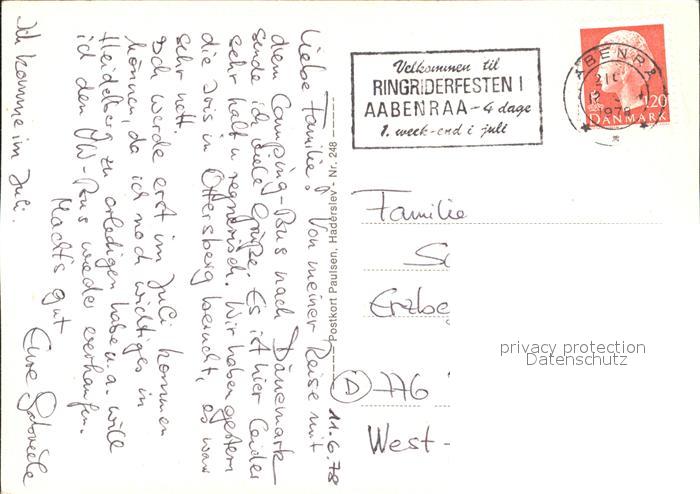 Liebe Familie! Von meiner Reise mit
dem Camping-Bus nach Dänemark
sende ich viele Grüße. Es ist hier leider
sehr kalt u. regnerisch. Wir haben gestern
die Dois in Ottersberg besucht, es war
sehr nett.
Ich werde erst im Juli kommen
können, da ich noch wichtiges in
Heidelberg zu erledigen habe u. a. will
ich den VW-Bus wieder verkaufen.
Machts gut
Eure Gabriele
Ich komme im Juli.
11.6.78
Postkort Paulsen, Haderslev - Nr. 248
Velkommen til
RINGRIDERFESTEN I
AABENRAA - 4 dage
1. week-end i juli
ABENRA
12
1978
120
DANMARK
Familie
Erzbe
D 776
West-
privacy protection
Datenschutz